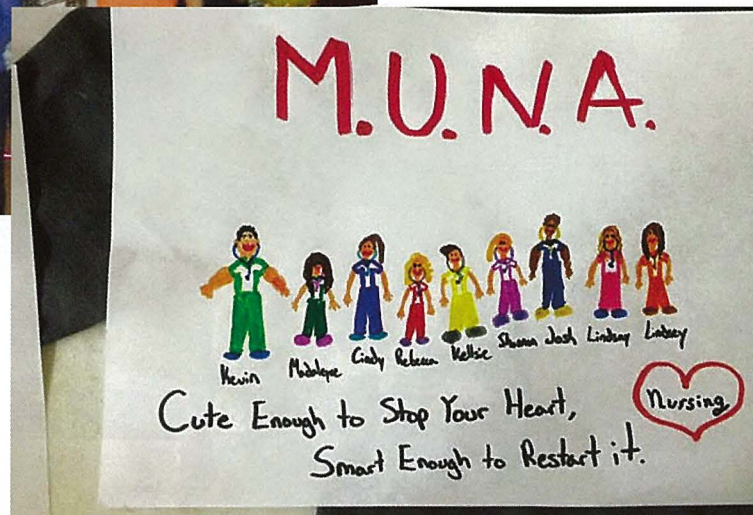 M.U.N.A.
Kevin Madalyne Cindy Rebecca Kelsie Shanna Josh Lindsay Lindsey
Cute Enough to Stop Your Heart,
Smart Enough to Restart it.
Nursing